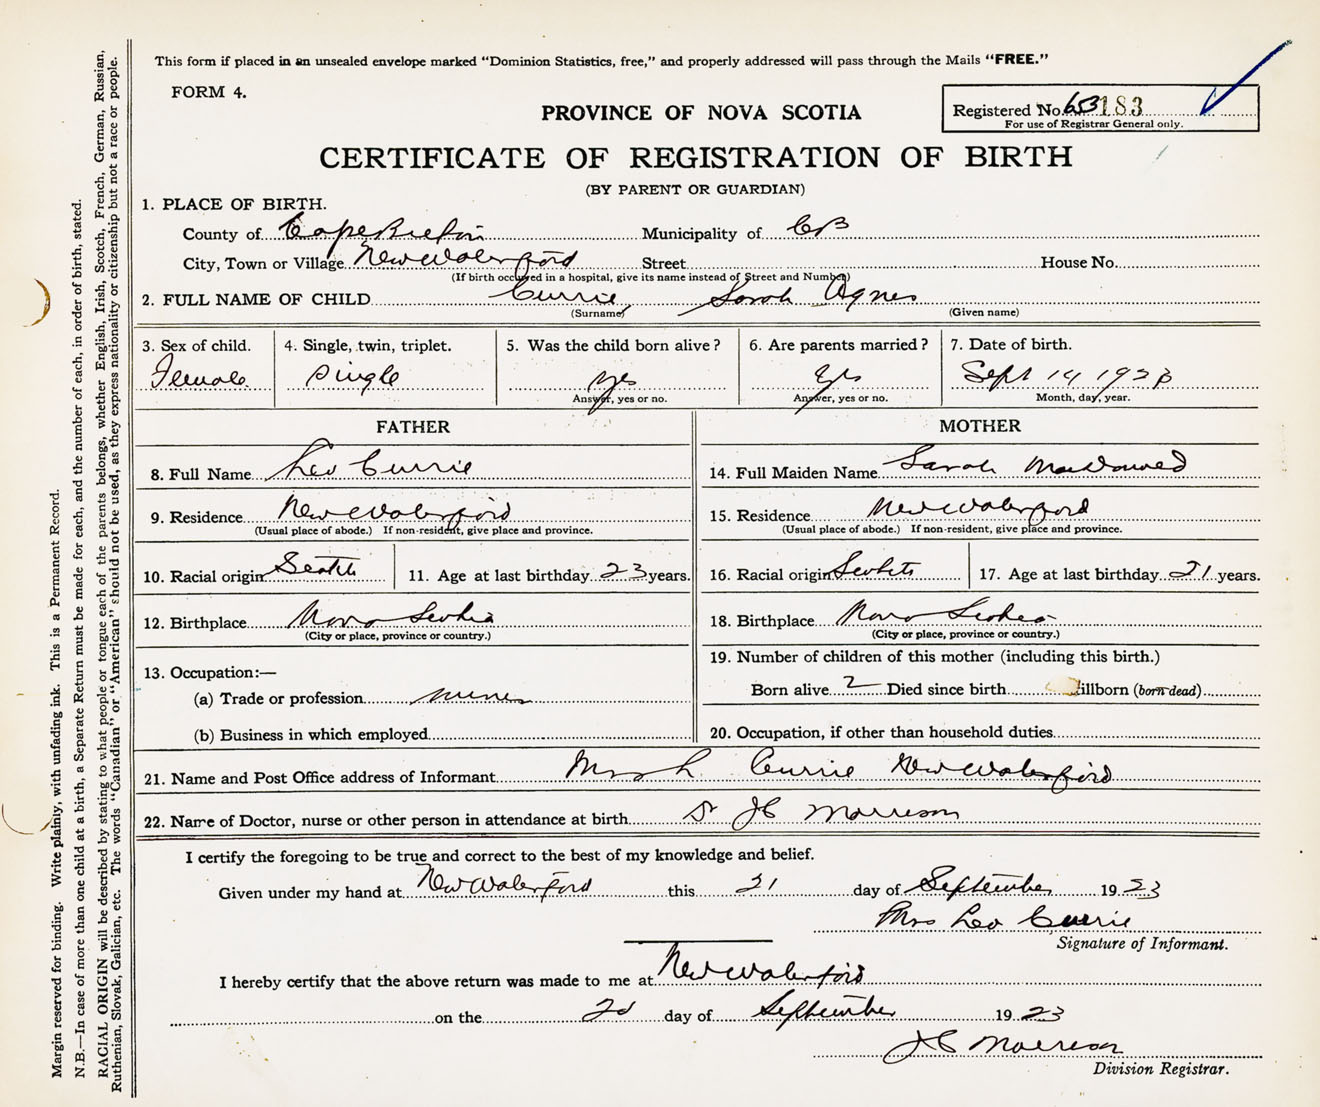 This form if placed in an unsealed envelope marked "Dominion Statistics, free," and properly addressed will pass through the Mails "FREE."
FORM 4.
PROVINCE OF NOVA SCOTIA
Registered No. 653183
For use of Registrar General only.
CERTIFICATE OF REGISTRATION OF BIRTH
(BY PARENT OR GUARDIAN)
1. PLACE OF BIRTH.
County of Cape Breton Municipality of CB
City, Town or Village New Waterford Street House No.
(If birth occured in a hospital, give its name instead of Street and Number)
2. FULL NAME OF CHILD Currie, Sarah Agnes
(Surname) (Given name)
3. Sex of child. 4. Single, twin, triplet. 5. Was the child born alive? 6. Are parents married? 7. Date of birth.
Female Single yes yes Sept 14 1923
Answer, yes or no. Answer, yes or no. Month, day, year.
FATHER MOTHER
8. Full Name Leo Currie 14. Full Maiden Name Sarah
9. Residence New Waterford 15. Residence New Waterford
(Usual place of abode.) If non-resident, give place and province. (Usual place of abode.) If non-resident, give place and province.
10. Racial origin 11. Age at last birthday 23 years. 16. Racial origin 17. Age at last birthday 21 years.
12. Birthplace Nova Scotia 18. Birthplace Nova Scotia
(City or place, province or country.) (City or place, province or country.)
13. Occupation:— 19. Number of children of this mother (including this birth.)
(a) Trade or profession miner Born alive 2 Died since birth illborn (born dead)
(b) Business in which employed 20. Occupation, if other than household duties
21. Name and Post Office address of Informant Mrs L Currie New Waterford
22. Name of Doctor, nurse or other person in attendance at birth Dr JC Morrison
I certify the foregoing to be true and correct to the best of my knowledge and belief.
Given under my hand at New Waterford this 21 day of September 1923
Mrs Leo Currie
Signature of Informant.
I hereby certify that the above return was made to me at New Waterford
on the day of September 1923
JC Morrison
Division Registrar.
Margin reserved for binding. Write plainly, with unfading ink. This is a Permanent Record.
N.B.—In case of more than one child at a birth, a Separate Return must be made for each, and the number of each, in order of birth, stated.
RACIAL ORIGIN will be described by stating to what people or tongue each of the parents belongs, whether English, Irish, Scotch, French, German, Russian,
Ruthenian, Slovak, Galician, etc. The words "Canadian" or "American" should not be used, as they express nationality or citizenship but not a race or people.